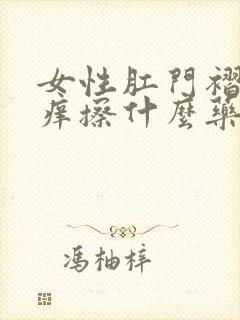 女性肛門褶
痒擦什麼藥
馮柚梓